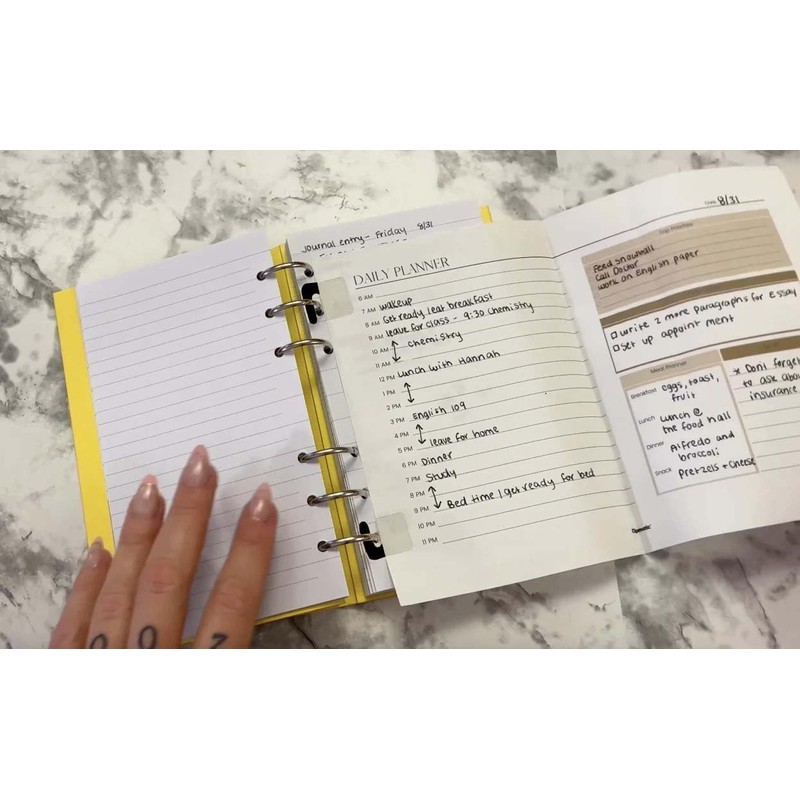 Journal entry - Friday 8/31
DAILY PLANNER
6 AM
7 AM wakeup
8 AM Get ready, eat breakfast
9 AM leave for class - 9:30 Chemistry
10 AM Chemistry
11 AM
12 PM Lunch with Hannah
1 PM
2 PM
3 PM English 109
4 PM
5 PM leave for home
6 PM Dinner
7 PM Study
8 PM
9 PM Bed time / get ready for bed
10 PM
11 PM
Date 8/31
Top Priorities
Feed Snowball
Call Doctor
work on English paper
write 2 more paragraphs for Essay
Set up appointment
Meal Planner
Breakfast eggs, toast,
fruit
Lunch Lunch @
the food hall
Dinner Alfredo and
broccoli
Snack Pretzels + Cheese
* Dont forget
to ask abou
insurance
007